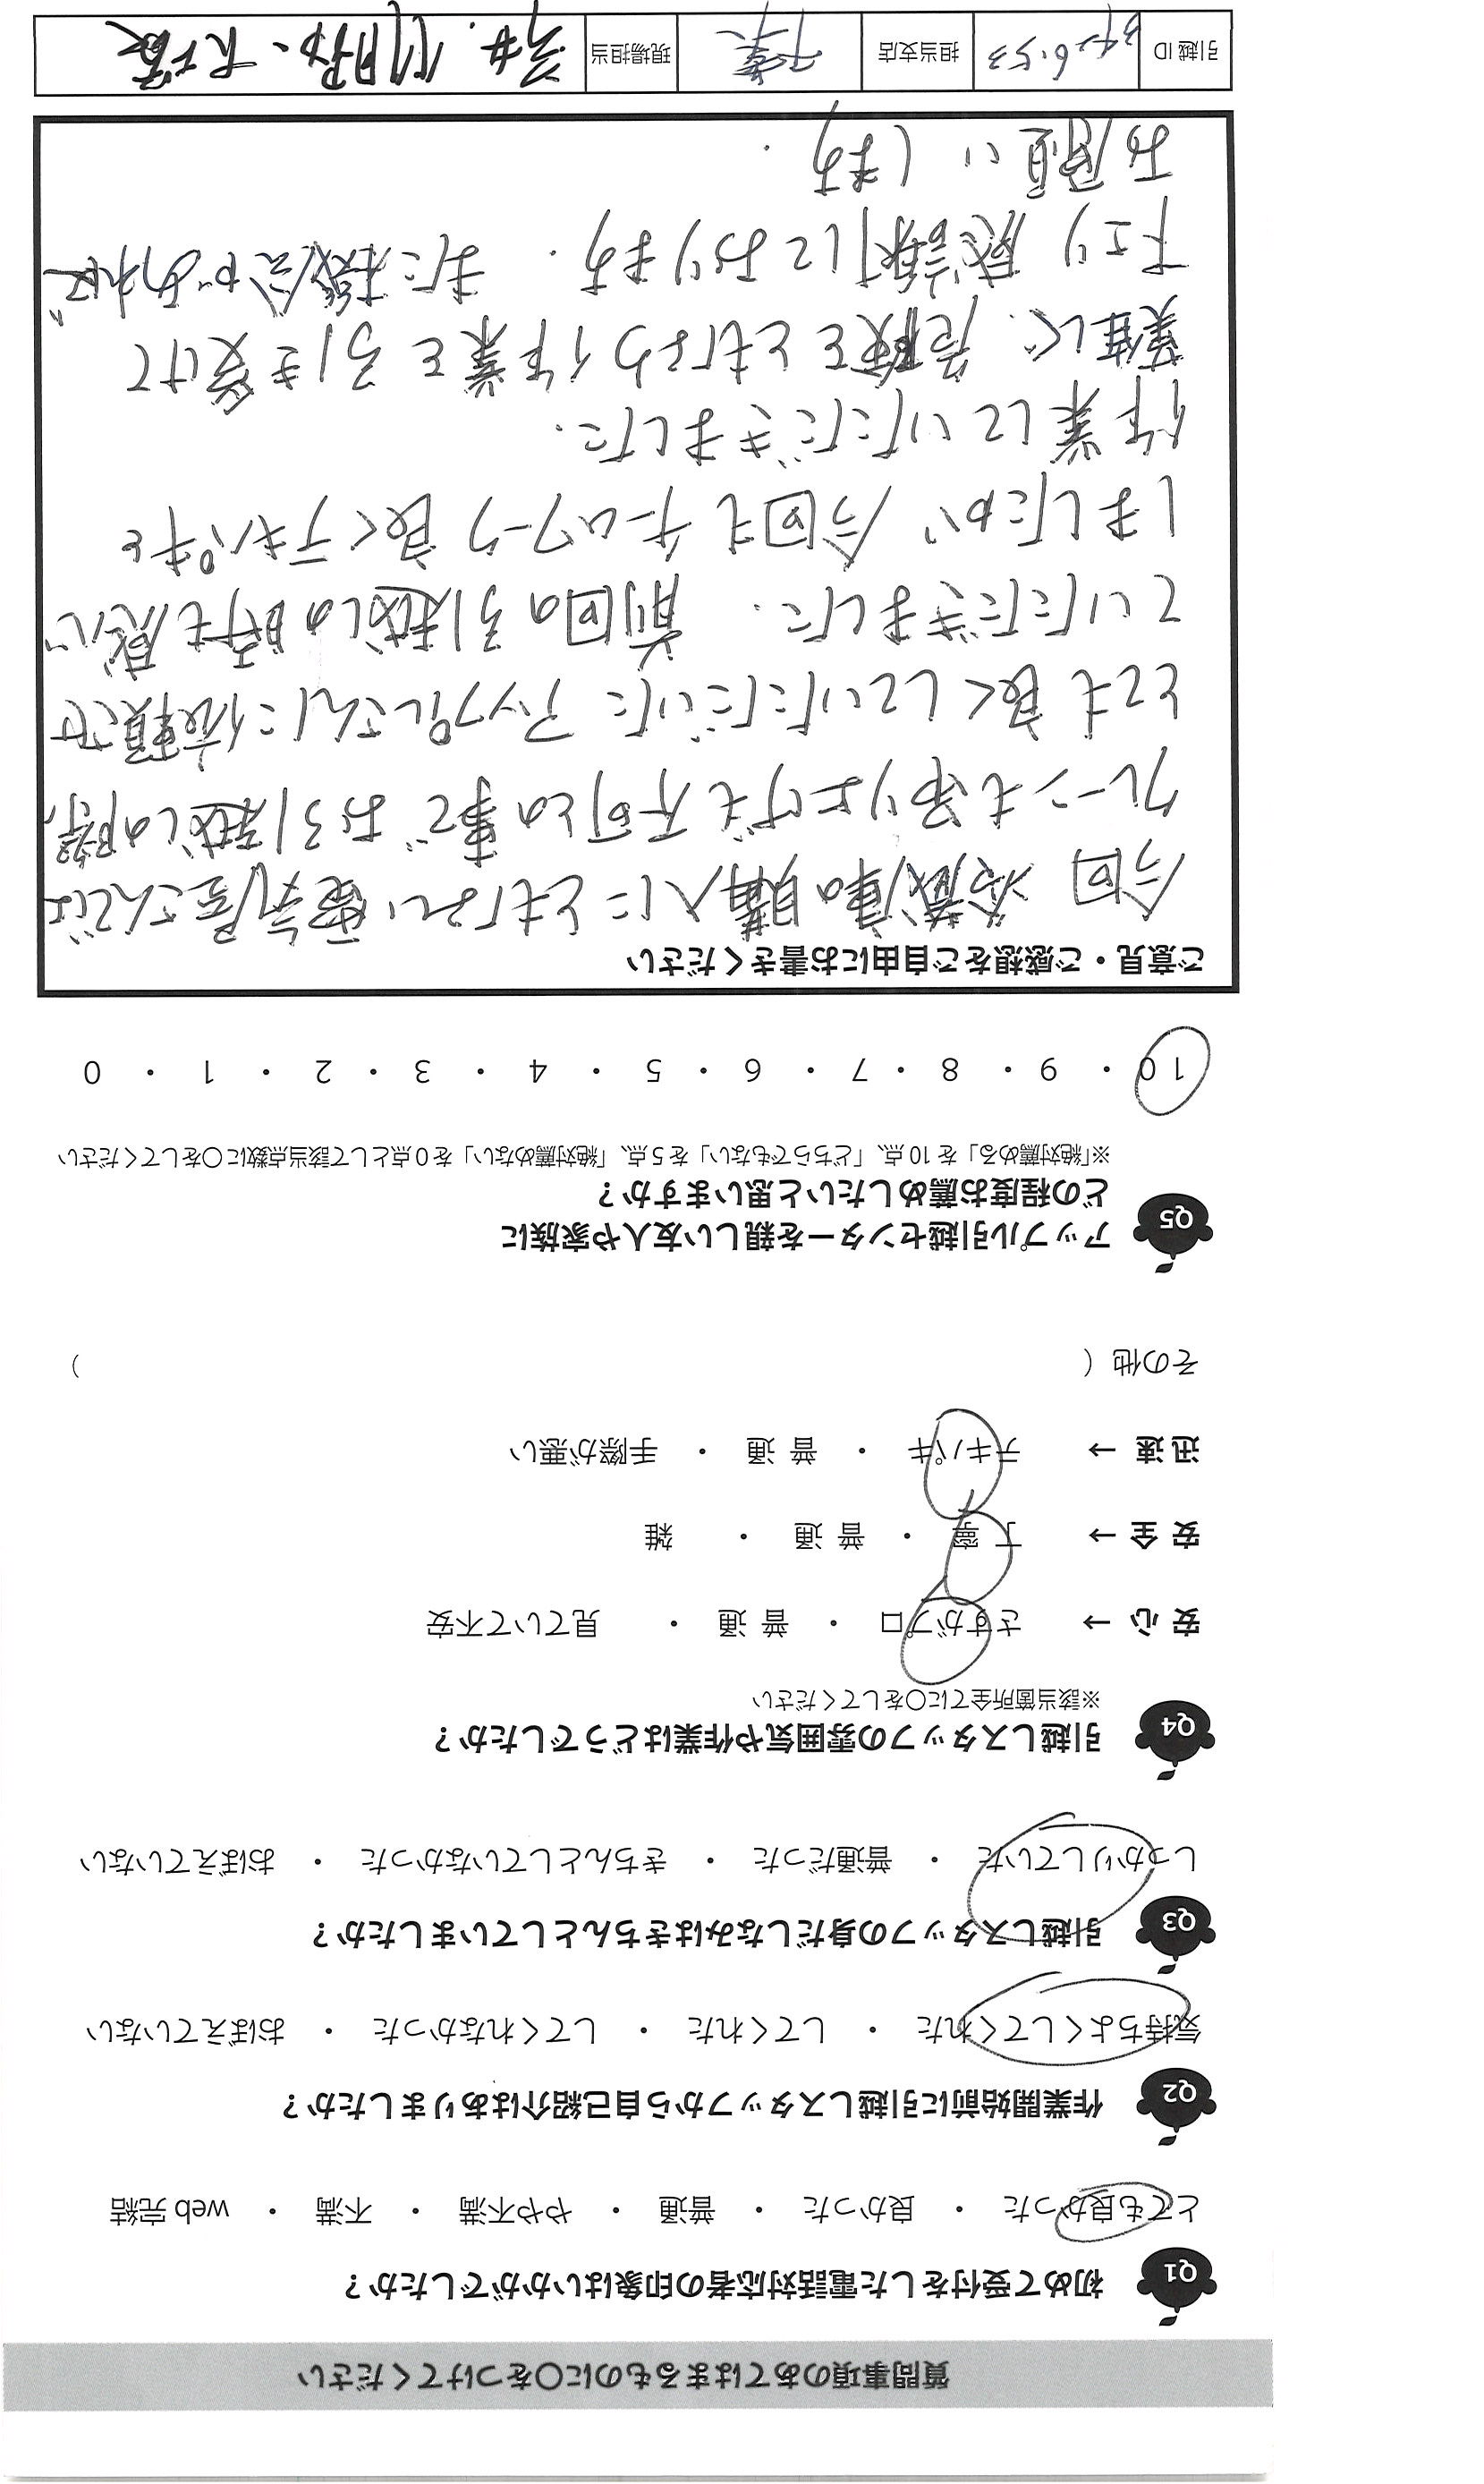 質問事項のあてはまるものに○をつけてください
Q1 初めて受付をした電話対応者の印象はいかがでしたか？
とても良かった ・ 良かった ・ 普通 ・ やや不満 ・ 不満 ・ web 完結
Q2 作業開始前に引越しスタッフから自己紹介はありましたか？
気持ちよくしてくれた ・ してくれた ・ してくれなかった ・ おぼえていない
Q3 引越しスタッフの身だしなみはきちんとしていましたか？
しっかりしていた ・ 普通だった ・ きちんとしていなかった ・ おぼえていない
Q4 引越しスタッフの雰囲気や作業はどうでしたか？
※該当箇所全てに○をしてください
安 心 → さすがプロ ・ 普 通 ・ 見ていて不安
安 全 → 丁 寧 ・ 普 通 ・ 雑
迅 速 → テキパキ ・ 普 通 ・ 手際が悪い
その他（ ）
Q5 アップル引越センターを親しい友人や家族に
どの程度お薦めしたいと思いますか？
※「絶対薦める」を 10 点、「どちらでもない」を 5 点、「絶対薦めない」を 0 点として該当点数に○をしてください
10 ・ 9 ・ 8 ・ 7 ・ 6 ・ 5 ・ 4 ・ 3 ・ 2 ・ 1 ・ 0
ご意見・ご感想をご自由にお書きください
今回 冷蔵庫の購入にともない電気屋さんでは
クレーンも吊り上げも不可との事で お引越しの際、
とても良くしていただいた アップルさんに依頼させ
ていただきました. 前回の引越しの時も感じ
しましたが 今回も チームワーク 良く テキパキと
作業していただきました.
難しく、危険をともなう作業を引き受けて
下さり 感謝しております. また機会があれば
お願いします.
引越 ID 担当支店 千葉 現場担当